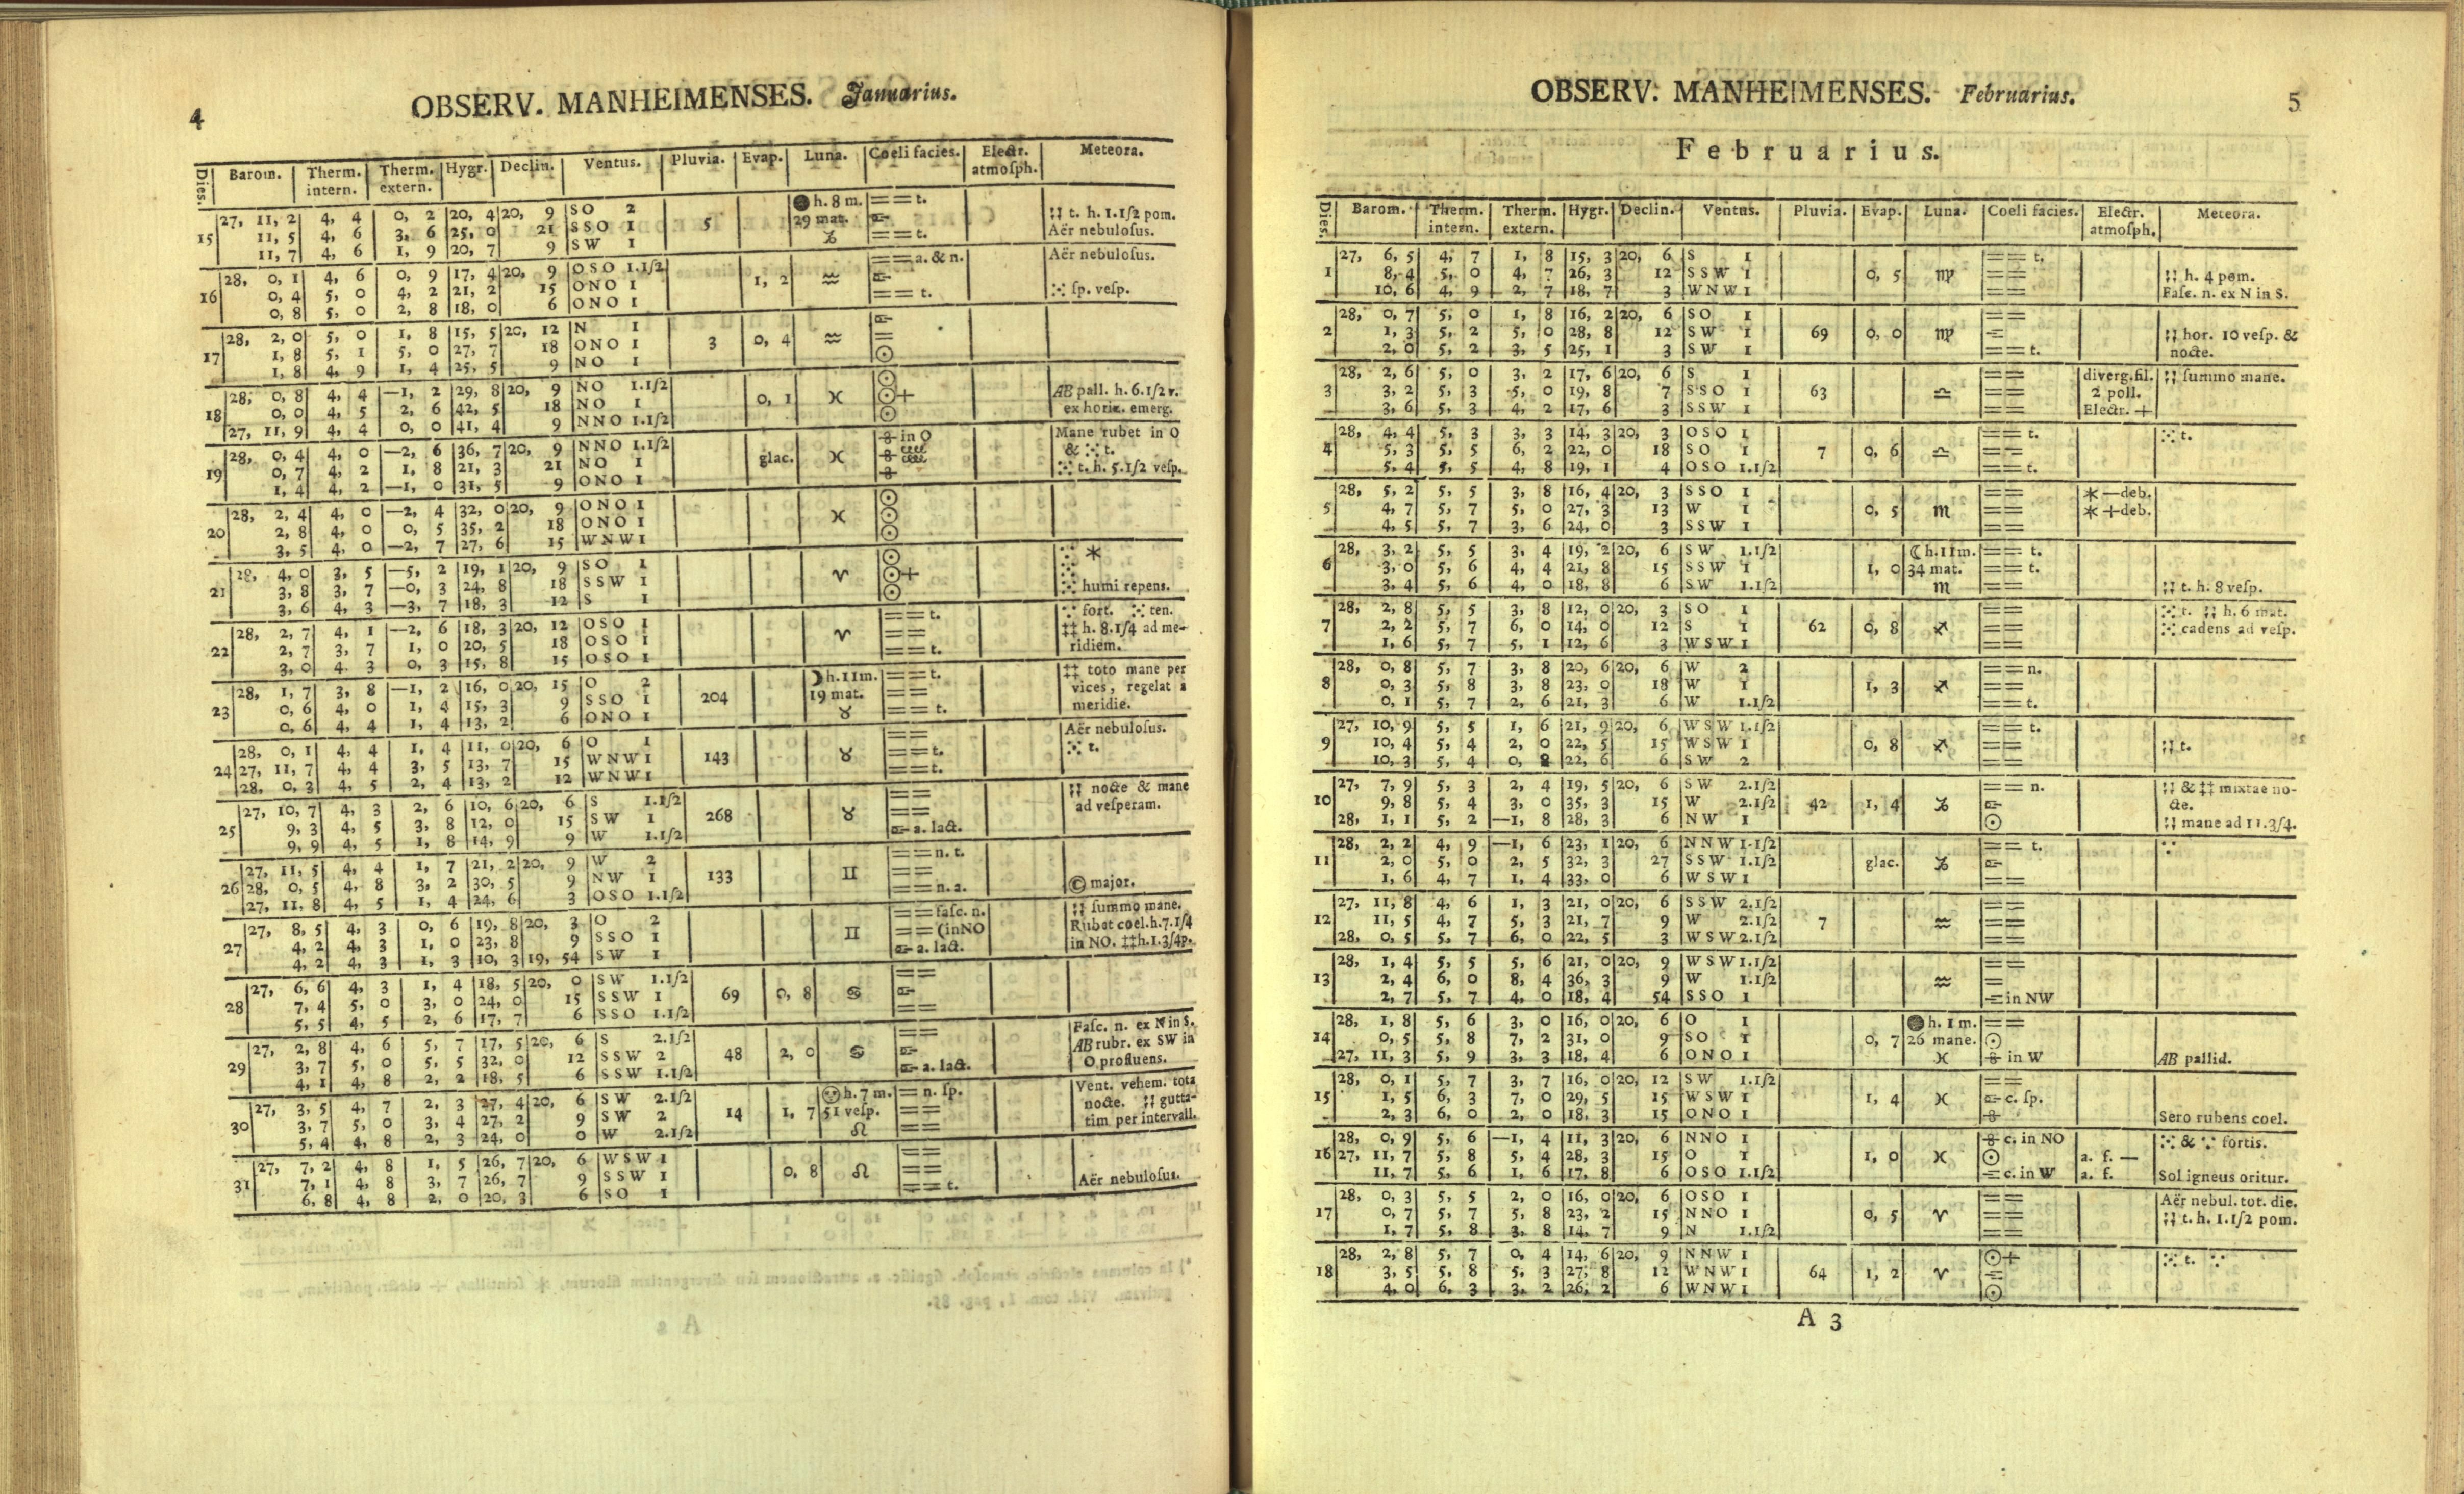 4
OBSERV. MANHEIMENSES. Januarius.
Dies. Barom. Therm. intern. Therm. extern. Hygr. Declin. Ventus. Pluvia. Evap. Luna. Coeli facies. Electr. atmoſph. Meteora.
27, 11, 2 4, 4 0, 2 20, 4 20, 9 SO 2 ● h. 8 m. == t.
15 11, 5 4, 6 3, 6 25, 0 21 SSO 1 5 29 mat. ;; t. h. 1.1ſ2 pom.
11, 7 4, 6 1, 9 20, 7 9 SW 1 ♑ == t. Aër nebuloſus.
28, 0, 1 4, 6 0, 9 17, 4 20, 9 OSO 1.1ſ2 == a. & n. Aër nebuloſus.
16 0, 4 5, 0 4, 2 21, 2 15 ONO 1 1, 2 ♒
0, 8 5, 0 2, 8 18, 0 6 ONO 1 == t. ⁙ ſp. veſp.
28, 2, 0 5, 0 1, 8 15, 5 20, 12 N 1
17 1, 8 5, 1 5, 0 27, 7 18 ONO 1 3 0, 4 ♒ =
1, 8 4, 9 1, 4 25, 5 9 NO 1 ☉
28, 0, 8 4, 4 —1, 2 29, 8 20, 9 NO 1.1ſ2 ☉ AB pall. h. 6.1ſ2 v.
18 0, 0 4, 5 2, 6 42, 5 18 NO 1 0, 1 ♓ ☉+ ex horiz. emerg.
27, 11, 9 4, 4 0, 0 41, 4 9 NNO 1.1ſ2 ☉
28, 0, 4 4, 0 —2, 6 36, 7 20, 9 NNO 1.1ſ2 in O Mane rubet in O
19 0, 7 4, 2 1, 8 21, 3 21 NO 1 glac. ♓ & ⁙ t.
1, 4 4, 2 —1, 0 31, 5 9 ONO 1 ⁙ t. h. 5.1ſ2 veſp.
28, 2, 4 4, 0 —2, 4 32, 0 20, 9 ONO 1 ☉
20 2, 8 4, 0 0, 5 35, 2 18 ONO 1 ♓ ☉
3, 5 4, 0 —2, 7 27, 6 15 WNW 1 ☉
28, 4, 0 3, 5 —5, 2 19, 1 20, 9 SO 1 ☉ ⁙ *
21 3, 8 3, 7 —0, 3 24, 8 18 SSW 1 ♈ ☉+
3, 6 4, 3 —3, 7 18, 3 12 S 1 ☉ ⁙ humi repens.
28, 2, 7 4, 1 —2, 6 18, 3 20, 12 OSO 1 == t. fort. ⁙ ten.
22 2, 7 3, 7 1, 0 20, 5 18 OSO 1 ♈ == ‡‡ h. 8.1ſ4 ad me-
3, 0 4. 3 0, 3 15, 8 15 OSO 1 == t. ridiem.
28, 1, 7 3, 8 —1, 2 16, 0 20, 15 O 2 ☽ h. 11 m. == t. ‡‡ toto mane per
23 0, 6 4, 0 1, 4 15, 3 9 SSO 1 204 19 mat. == vices, regelat a
0, 6 4, 4 1, 4 13, 2 6 ONO 1 ♉ == t. meridie.
28, 0, 1 4, 4 1, 4 11, 0 20, 6 O 1 == Aër nebuloſus.
24 27, 11, 7 4, 4 3, 5 13, 7 15 WNW 1 143 ♉ == t. ⁙ t.
28, 0, 3 4, 5 2, 4 13, 2 12 WNW 1 == t.
27, 10, 7 4, 3 2, 6 10, 6 20, 6 S 1.1ſ2 == ;; nocte & mane
25 9, 3 4, 5 3, 8 12, 0 15 SW 1 268 ♉ == ad veſperam.
9, 9 4, 5 1, 8 14, 9 9 W 1.1ſ2 a. lact.
27, 11, 5 4, 4 1, 7 21, 2 20, 9 W 2 == n. t.
26 28, 0, 5 4, 8 3, 2 30, 5 9 NW 1 133 ♊ ==
27, 11, 8 4, 5 1, 4 24, 6 3 OSO 1.1ſ2 == n. a. © major.
27, 8, 5 4, 3 0, 6 19, 8 20, 3 O 2 == faſc. n. ;; ſummo mane.
27 4, 2 4, 3 1, 0 23, 8 9 SSO 1 ♊ == (in NO Rubet coel. h. 7.1ſ4
4, 2 4, 3 1, 3 10, 3 19, 54 SW 1 a. lact. in NO. ‡‡ h. 1.3ſ4 p.
27, 6, 6 4, 3 1, 4 18, 5 20, 0 SW 1.1ſ2 ==
28 7, 4 5, 0 3, 0 24, 0 15 SSW 1 69 0, 8 ♋
5, 5 4, 5 2, 6 17, 7 6 SSO 1.1ſ2 ==
27, 2, 8 4, 6 5, 7 17, 5 20, 6 S 2.1ſ2 == Faſc. n. ex N in S.
29 3, 7 5, 0 5, 5 32, 0 12 SSW 2 48 2, 0 ♋ AB rubr. ex SW in
4, 1 4, 8 2, 2 18, 5 6 SSW 1.1ſ2 a. lact. O profluens.
27, 3, 5 4, 7 2, 3 27, 4 20, 6 SW 2.1ſ2 h. 7 m. = n. ſp. Vent. vehem. tota
30 3, 7 5, 0 3, 4 27, 2 9 SW 2 14 1, 7 51 veſp. == nocte. ;; gutta-
5, 4 4, 8 2, 3 24, 0 0 W 2.1ſ2 ♌ == tim per intervall.
27, 7, 2 4, 8 1, 5 26, 7 20, 6 WSW 1 ==
31 7, 1 4, 8 3, 7 26, 7 9 SSW 1 0, 8 ♌ ==
6, 8 4, 8 2, 0 20, 3 6 SO 1 == t. Aër nebuloſus.
OBSERV. MANHEIMENSES. Februarius. 5
Februarius.
Dies. Barom. Therm. intern. Therm. extern. Hygr. Declin. Ventus. Pluvia. Evap. Luna. Coeli facies. Electr. atmoſph. Meteora.
27, 6, 5 4, 7 1, 8 15, 3 20, 6 S 1 == t.
1 8, 4 5, 0 4, 7 26, 3 12 SSW 1 0, 5 ♍ == ;; h. 4 pom.
10, 6 4, 9 2, 7 18, 7 3 WNW 1 == Faſc. n. ex N in S.
28, 0, 7 5, 0 1, 8 16, 2 20, 6 SO 1 ==
2 1, 3 5, 2 5, 0 28, 8 12 SW 1 69 0, 0 ♍ ;; hor. 10 veſp. &
2, 0 5, 2 3, 5 25, 1 3 SW 1 == t. nocte.
28, 2, 6 5, 0 3, 2 17, 6 20, 6 S 1 == diverg. fil. ;; ſummo mane.
3 3, 2 5, 3 5, 0 19, 8 7 SSO 1 63 ♎ == 2 poll.
3, 6 5, 3 4, 2 17, 6 3 SSW 1 == Electr. +
28, 4, 4 5, 3 3, 3 14, 3 20, 3 OSO 1 == t. ⁙ t.
4 5, 3 5, 5 6, 2 22, 0 18 SO 1 7 0, 6 ♎ ==
5, 4 5, 5 4, 8 19, 1 4 OSO 1.1ſ2 == t.
28, 5, 2 5, 5 3, 8 16, 4 20, 3 SSO 1 == * — deb.
5 4, 7 5, 7 5, 0 27, 3 13 W 1 0, 5 ♏ == * + deb.
4, 5 5, 7 3, 6 24, 0 3 SSW 1 ==
28, 3, 2 5, 5 3, 4 19, 2 20, 6 SW 1.1ſ2 ☾ h. 11 m. == t.
6 3, 0 5, 6 4, 4 21, 8 15 SSW 1 1, 0 34 mat. == t.
3, 4 5, 6 4, 0 18, 8 6 SW 1.1ſ2 ♏ == ;; t. h. 8 veſp.
28, 2, 8 5, 5 3, 8 12, 0 20, 3 SO 1 == ⁙ t. ;; h. 6 mat.
7 2, 2 5, 7 6, 0 14, 0 12 S 1 62 0, 8 ♐ == ⁙ cadens ad veſp.
1, 6 5, 7 5, 1 12, 6 3 WSW 1 ==
28, 0, 8 5, 7 3, 8 20, 6 20, 6 W 2 == n.
8 0, 3 5, 8 3, 8 23, 0 18 W 1 1, 3 ♐ ==
0, 1 5, 7 2, 6 21, 3 6 W 1.1ſ2 == t.
27, 10, 9 5, 5 1, 6 21, 9 20, 6 WSW 1.1ſ2 == t.
9 10, 4 5, 4 2, 0 22, 5 15 WSW 1 0, 8 ♐ == ;; t.
10, 3 5, 4 0, 22, 6 6 SW 2 ==
27, 7, 9 5, 3 2, 4 19, 5 20, 6 SW 2.1ſ2 == n. ;; & ‡‡ mixtae no-
10 9, 8 5, 4 3, 0 35, 3 15 W 2.1ſ2 42 1, 4 ♑ cte.
28, 1, 1 5, 2 —1, 8 28, 3 6 NW 1 ☉ ;; mane ad 11.3ſ4.
28, 2, 2 4, 9 —1, 6 23, 1 20, 6 NNW 1.1ſ2 == t.
11 2, 0 5, 0 2, 5 32, 3 27 SSW 1.1ſ2 glac. ♑
1, 6 4, 7 1, 4 33, 0 6 WSW 1 ==
27, 11, 8 4, 6 1, 3 21, 0 20, 6 SSW 2.1ſ2 ==
12 11, 5 4, 7 5, 3 21, 7 9 W 2.1ſ2 7 ♒ ==
28, 0, 5 5, 7 6, 0 22, 5 3 WSW 2.1ſ2 ==
28, 1, 4 5, 5 5, 6 21, 0 20, 9 WSW 1.1ſ2 ==
13 2, 4 6, 0 8, 4 36, 3 9 W 1.1ſ2 ♒ =
2, 7 5, 7 4, 0 18, 4 54 SSO 1 in NW
28, 1, 8 5, 6 3, 0 16, 0 20, 6 O 1 ● h. 1 m. ==
14 0, 5 5, 8 7, 2 31, 0 9 SO 1 0, 7 26 mane. ☉
27, 11, 3 5, 9 3, 3 18, 4 6 ONO 1 ♓ in W AB pallid.
28, 0, 1 5, 7 3, 7 16, 0 20, 12 SW 1.1ſ2 ==
15 1, 5 6, 3 7, 0 29, 5 15 WSW 1 1, 4 ♓ c. ſp.
2, 3 6, 0 2, 0 18, 3 15 ONO 1 Sero rubens coel.
28, 0, 9 5, 6 —1, 4 11, 3 20, 6 NNO 1 c. in NO ⁙ & fortis.
16 27, 11, 7 5, 8 5, 4 28, 3 15 O 1 1, 0 ♓ ☉ a. f. —
11, 7 5, 6 1, 6 17, 8 6 OSO 1.1ſ2 c. in W a. f. Sol igneus oritur.
28, 0, 3 5, 5 2, 0 16, 0 20, 6 OSO 1 == Aër nebul. tot. die.
17 0, 7 5, 7 5, 8 23, 2 15 NNO 1 0, 5 ♈ == ;; t. h. 1.1ſ2 pom.
1, 7 5, 8 3, 8 14, 7 9 N 1.1ſ2 ==
28, 2, 8 5, 7 0, 4 14, 6 20, 9 NNW 1 ☉+ ⁙ t.
18 3, 5 5, 8 5, 3 27, 8 12 WNW 1 64 1, 2 ♈
4, 0 6, 3 3, 2 26, 2 6 WNW 1 ☉
A 3